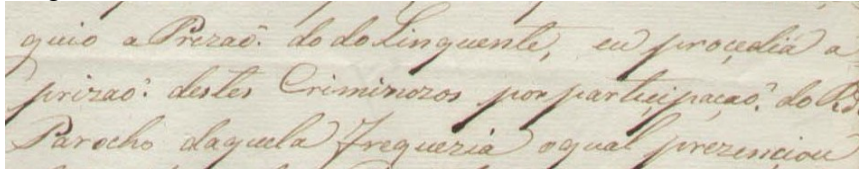 guio a Prezaõ. do do Linquente, eu proçedia a
prizaõ. destes Criminozos por partiçipaçaõ. do R.do
Parocho daquela Freguezia oqual prezençiou